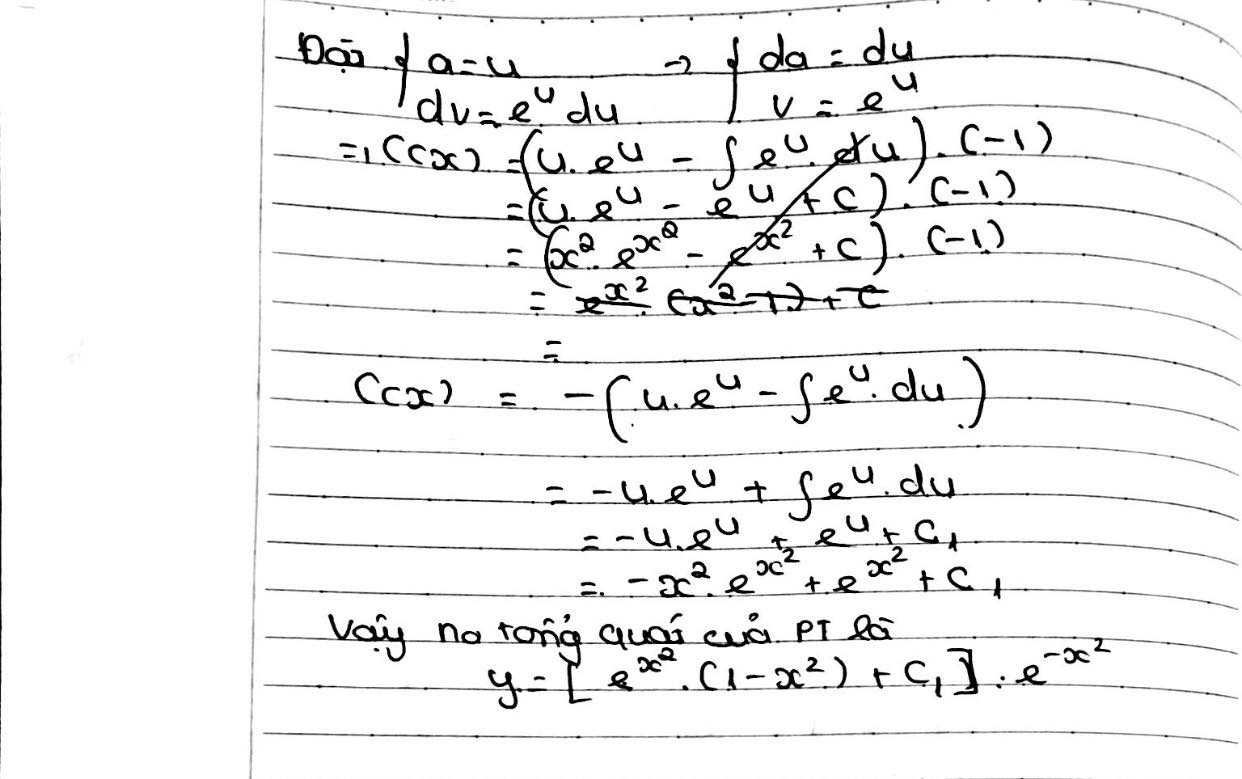 Đặt { a = u → { da = du
dv = e^u du v = e^u
=> C(x) = (u.e^u - ∫e^u.du).(-1)
= (u.e^u - e^u + C).(-1)
= (x².e^x² - e^x² + C).(-1)
= e^x².(x²-1) + C
=
C(x) = -(u.e^u - ∫e^u.du)
= -u.e^u + ∫e^u.du
= -u.e^u + e^u + C₁
= -x².e^x² + e^x² + C₁
Vậy no tổng quát của PT là
y = [e^x².(1-x²) + C₁].e^-x²